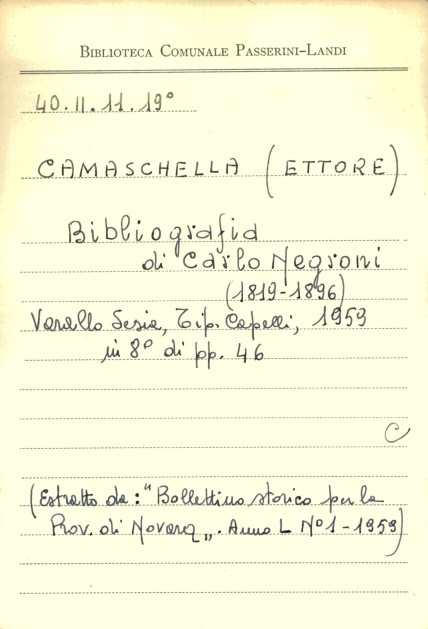 BIBLIOTECA COMUNALE PASSERINI-LANDI
40.II.11.19°
CAMASCHELLA (ETTORE)
Bibliografia
di Carlo Negroni
(1819-1896)
Varallo Sesia, Tip. Capelli, 1959
in 8° di pp. 46
C
(Estratto da: "Bollettino storico per la
Prov. di Novara„. Anno L N°1-1959)